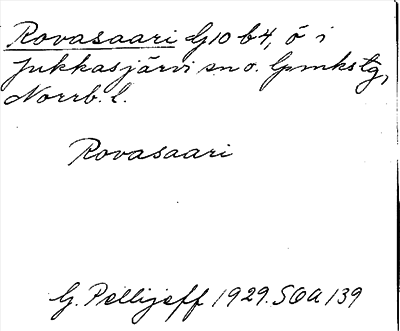 Rovasaari G10 b4, ö i
Jukkasjärvi sn o. lpmkstg,
Norrb. l.
Rovasaari
G. Pellijeff 1929. SOA 139